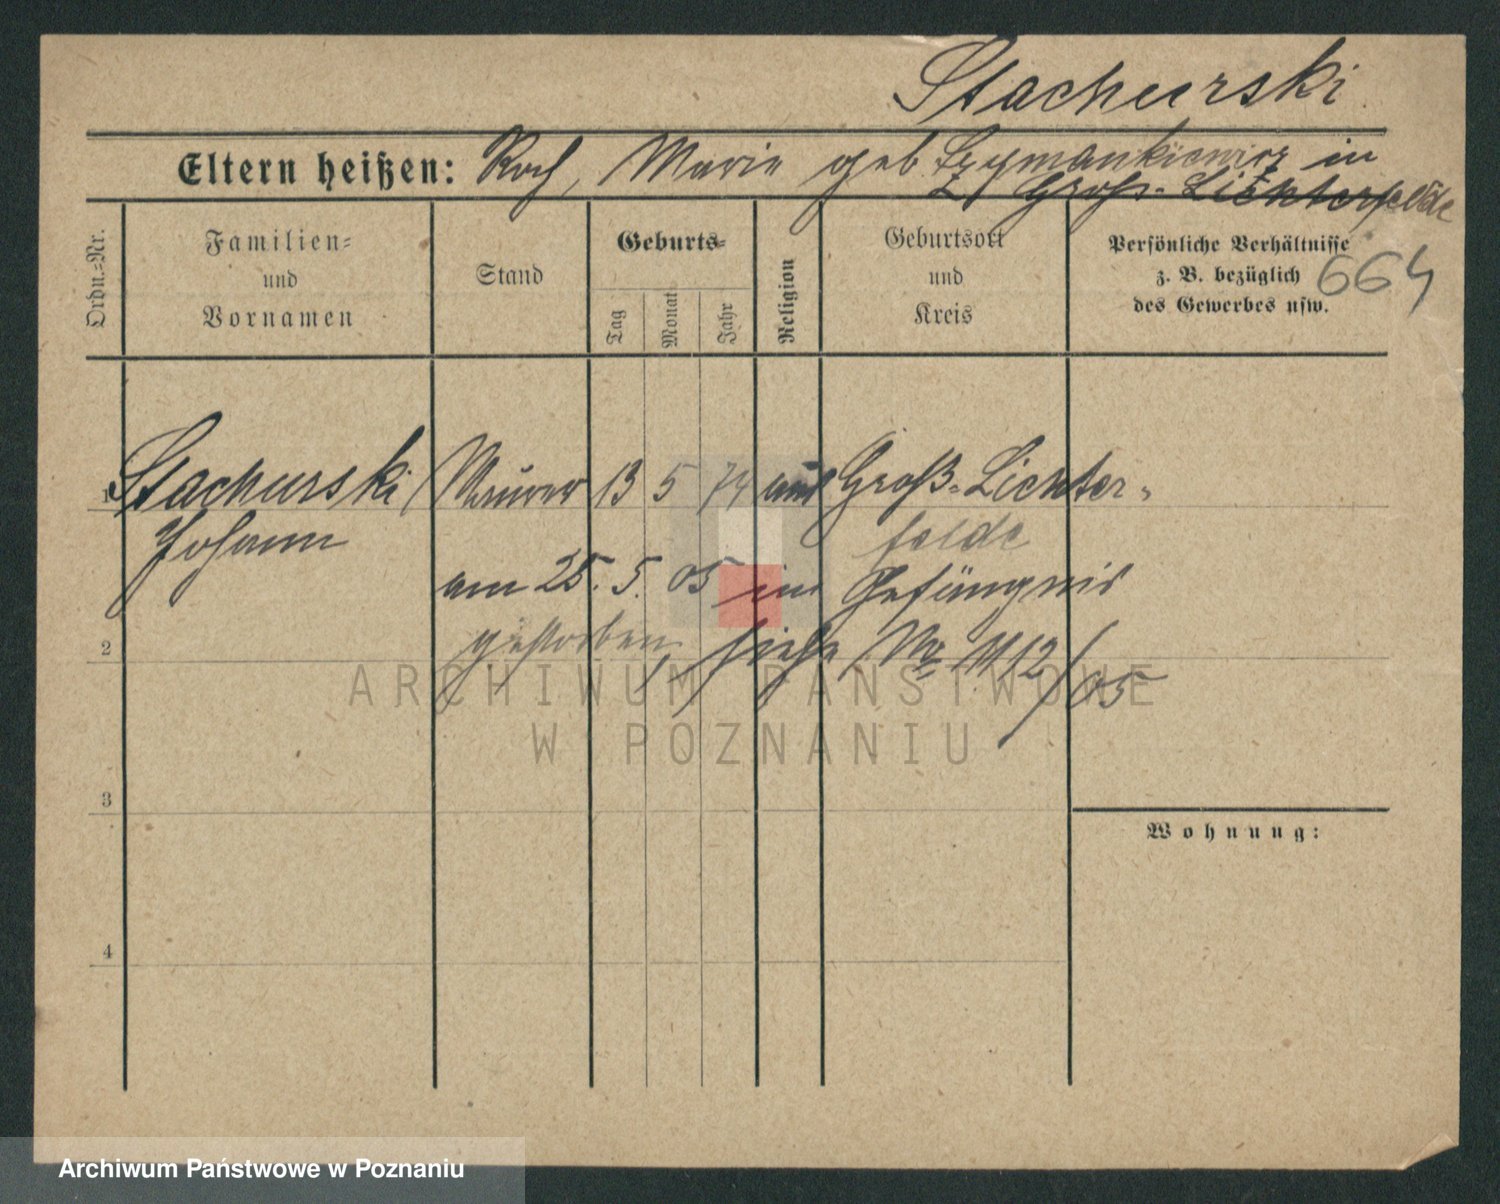 Stachurski
Eltern heißen: Roch, Marie geb Szymankiewicz in
Groß-Lichterfelde
Ordn.=Nr.
Familien=
und
Vornamen
Stand
Geburts=
Tag
Monat
Jahr
Religion
Geburtsort
und
Kreis
Persönliche Verhältnisse
z. B. bezüglich
des Gewerbes usw.
664
1 Stachurski, Maurer 13 5 74 aus Groß=Lichter=
Johann felde
am 25. 5. 05 im Gefängnis
2 gestorben, siehe No 1112/05
3
Wohnung:
4
ARCHIWUM PAŃSTWOWE
W POZNANIU
Archiwum Państwowe w Poznaniu